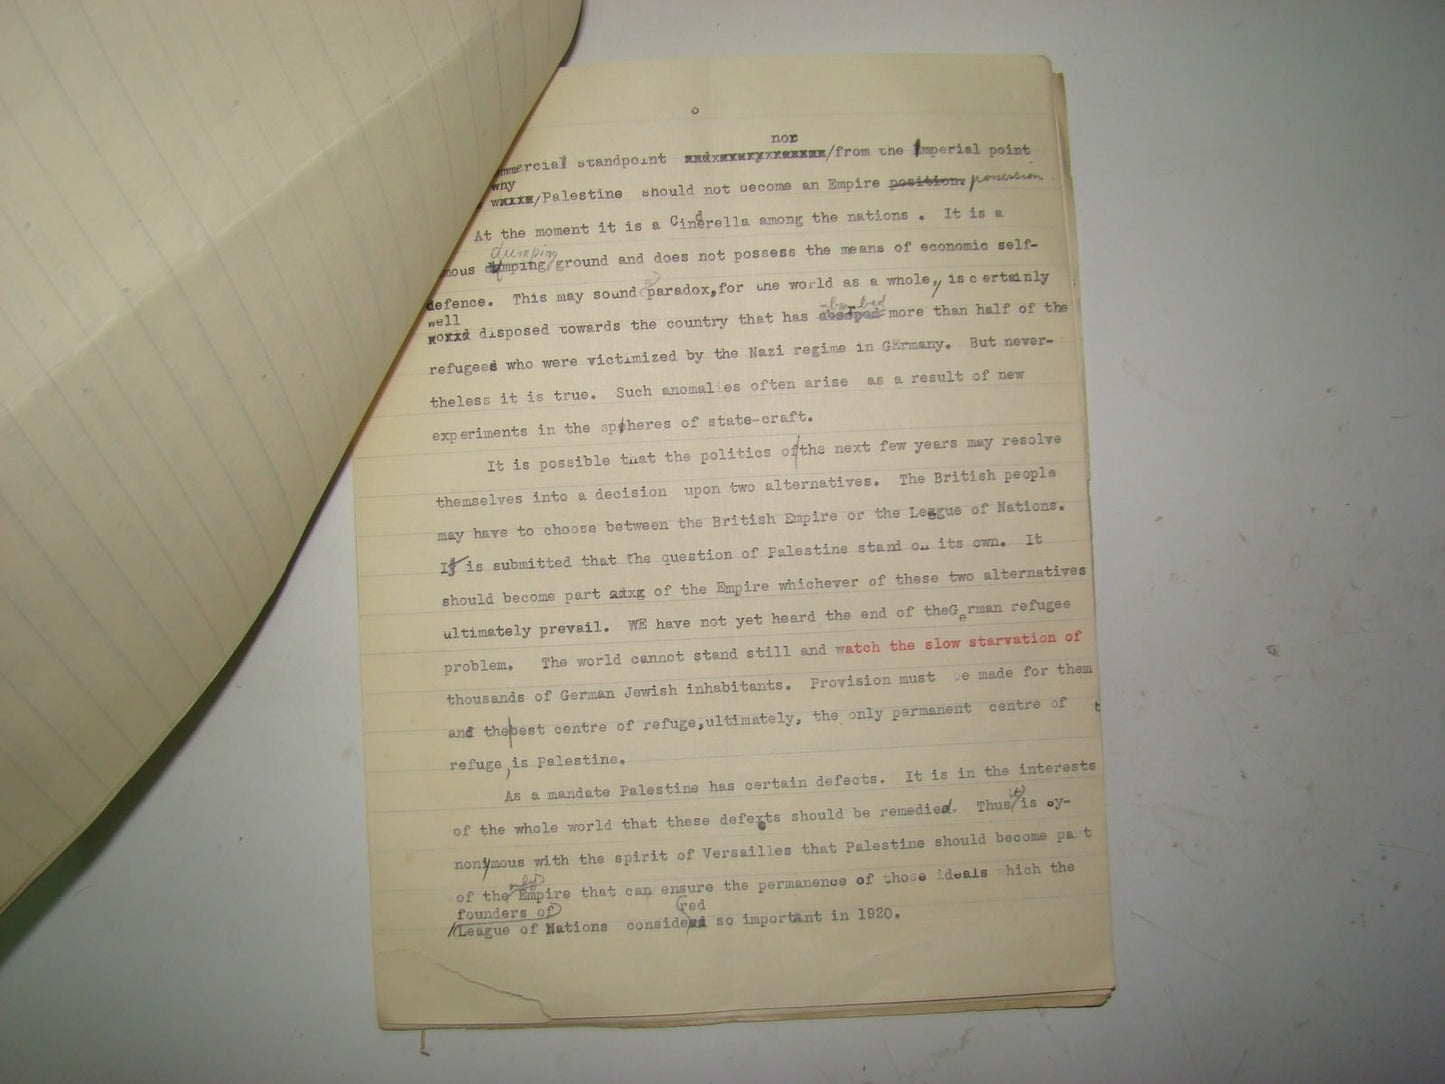 nor
mmercial standpoint /from the Imperial point
why
/Palestine should not become an Empire position. possession
At the moment it is a Cinderella among the nations . It is a
dumping
mous dumping/ground and does not possess the means of economic self-
defence. This may sound paradox,for the world as a whole, is certainly
well
world disposed towards the country that has absopad absorbed more than half of the
refugees who were victimized by the Nazi regime in GErmany. But never-
theless it is true. Such anomalies often arise as a result of new
experiments in the spheres of state-craft.
It is possible that the politics of the next few years may resolve
themselves into a decision upon two alternatives. The British people
may have to choose between the British Empire or the League of Nations.
It is submitted that the question of Palestine stand on its own. It
should become part of the Empire whichever of these two alternatives
ultimately prevail. WE have not yet heard the end of theGerman refugee
problem. The world cannot stand still and watch the slow starvation of
thousands of German Jewish inhabitants. Provision must be made for them
and the best centre of refuge,ultimately, the only permanent centre of t
refuge,is Palestine.
As a mandate Palestine has certain defects. It is in the interests
of the whole world that these defects should be remedied. Thus it is sy-
nonymous with the spirit of Versailles that Palestine should become part
of the only Empire that can ensure the permanence of those ideals which the
founders of red
League of Nations conside so important in 1920.